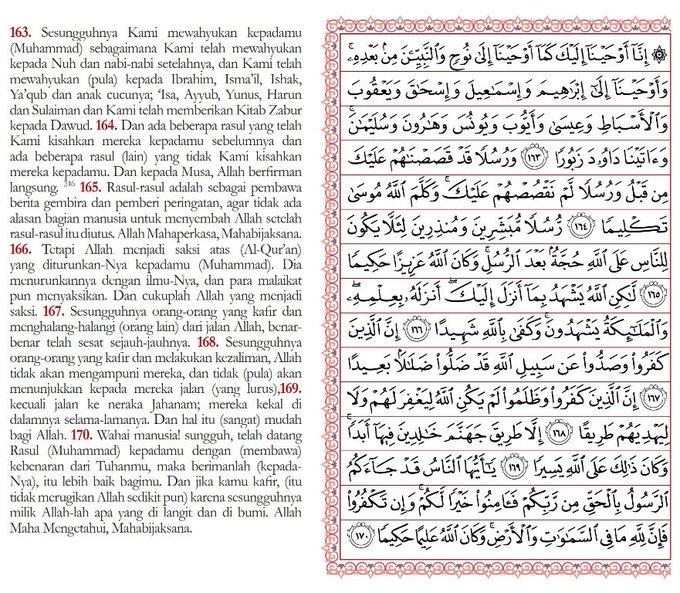 163. Sesungguhnya Kami mewahyukan kepadamu
(Muhammad) sebagaimana Kami telah mewahyukan
kepada Nuh dan nabi-nabi setelahnya, dan Kami telah
mewahyukan (pula) kepada Ibrahim, Isma’il, Ishak,
Ya’qub dan anak cucunya; ‘Isa, Ayyub, Yunus, Harun
dan Sulaiman dan Kami telah memberikan Kitab Zabur
kepada Dawud. 164. Dan ada beberapa rasul yang telah
Kami kisahkan mereka kepadamu sebelumnya dan
ada beberapa rasul (lain) yang tidak Kami kisahkan
mereka kepadamu. Dan kepada Musa, Allah berfirman
langsung. 246 165. Rasul-rasul adalah sebagai pembawa
berita gembira dan pemberi peringatan, agar tidak ada
alasan bagi manusia untuk menyembah Allah setelah
rasul-rasul itu diutus. Allah Mahaperkasa, Mahabijaksana.
166. Tetapi Allah menjadi saksi atas (Al-Qur’an)
yang diturunkan-Nya kepadamu (Muhammad). Dia
menurunkannya dengan ilmu-Nya, dan para malaikat
pun menyaksikan. Dan cukuplah Allah yang menjadi
saksi. 167. Sesungguhnya orang-orang yang kafir dan
menghalang-halangi (orang lain) dari jalan Allah, benar-
benar telah sesat sejauh-jauhnya. 168. Sesungguhnya
orang-orang yang kafir dan melakukan kezaliman, Allah
tidak akan mengampuni mereka, dan tidak (pula) akan
menunjukkan kepada mereka jalan (yang lurus),169.
kecuali jalan ke neraka Jahanam; mereka kekal di
dalamnya selama-lamanya. Dan hal itu (sangat) mudah
bagi Allah. 170. Wahai manusia! sungguh, telah datang
Rasul (Muhammad) kepadamu dengan (membawa)
kebenaran dari Tuhanmu, maka berimanlah (kepada-
Nya), itu lebih baik bagimu. Dan jika kamu kafir, (itu
tidak merugikan Allah sedikit pun) karena sesungguhnya
milik Allah-lah apa yang di langit dan di bumi. Allah
Maha Mengetahui, Mahabijaksana.
۞ إِنَّآ أَوْحَيْنَآ إِلَيْكَ كَمَآ أَوْحَيْنَآ إِلَىٰ نُوحٍ وَٱلنَّبِيِّـۧنَ مِنۢ بَعْدِهِۦ ۚ
وَأَوْحَيْنَآ إِلَىٰٓ إِبْرَٰهِيمَ وَإِسْمَـٰعِيلَ وَإِسْحَـٰقَ وَيَعْقُوبَ
وَٱلْأَسْبَاطِ وَعِيسَىٰ وَأَيُّوبَ وَيُونُسَ وَهَـٰرُونَ وَسُلَيْمَـٰنَ ۚ
وَءَاتَيْنَا دَاوُۥدَ زَبُورًا ١٦٣ وَرُسُلًا قَدْ قَصَصْنَـٰهُمْ عَلَيْكَ
مِن قَبْلُ وَرُسُلًا لَّمْ نَقْصُصْهُمْ عَلَيْكَ ۚ وَكَلَّمَ ٱللَّهُ مُوسَىٰ
تَكْلِيمًا ١٦٤ رُّسُلًا مُّبَشِّرِينَ وَمُنذِرِينَ لِئَلَّا يَكُونَ
لِلنَّاسِ عَلَى ٱللَّهِ حُجَّةٌۢ بَعْدَ ٱلرُّسُلِ ۚ وَكَانَ ٱللَّهُ عَزِيزًا حَكِيمًا
١٦٥ لَّـٰكِنِ ٱللَّهُ يَشْهَدُ بِمَآ أَنزَلَ إِلَيْكَ ۖ أَنزَلَهُۥ بِعِلْمِهِۦ ۖ
وَٱلْمَلَـٰٓئِكَةُ يَشْهَدُونَ ۚ وَكَفَىٰ بِٱللَّهِ شَهِيدًا ١٦٦ إِنَّ ٱلَّذِينَ
كَفَرُوا۟ وَصَدُّوا۟ عَن سَبِيلِ ٱللَّهِ قَدْ ضَلُّوا۟ ضَلَـٰلًۢا بَعِيدًا
١٦٧ إِنَّ ٱلَّذِينَ كَفَرُوا۟ وَظَلَمُوا۟ لَمْ يَكُنِ ٱللَّهُ لِيَغْفِرَ لَهُمْ وَلَا
لِيَهْدِيَهُمْ طَرِيقًا ١٦٨ إِلَّا طَرِيقَ جَهَنَّمَ خَـٰلِدِينَ فِيهَآ أَبَدًا ۚ
وَكَانَ ذَٰلِكَ عَلَى ٱللَّهِ يَسِيرًا ١٦٩ يَـٰٓأَيُّهَا ٱلنَّاسُ قَدْ جَآءَكُمُ
ٱلرَّسُولُ بِٱلْحَقِّ مِن رَّبِّكُمْ فَـَٔامِنُوا۟ خَيْرًا لَّكُمْ ۚ وَإِن تَكْفُرُوا۟
فَإِنَّ لِلَّهِ مَا فِى ٱلسَّمَـٰوَٰتِ وَٱلْأَرْضِ ۚ وَكَانَ ٱللَّهُ عَلِيمًا حَكِيمًا ١٧٠